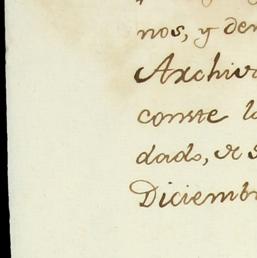 nos, y den
Archiv
conste l
dado, 
Diciembr